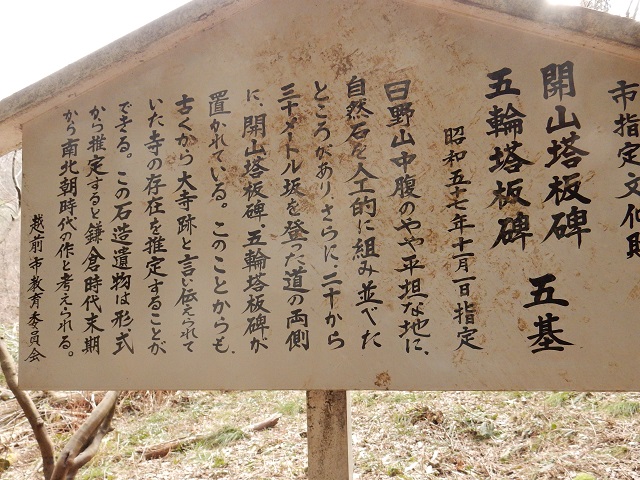 市指定文化財
開山塔板碑
五輪塔板碑 五基
昭和五十七年十一月一日指定
日野山中腹のやや平坦な地に、
自然石を人工的に組み並べた
ところがあり、さらに、二十から
三十メートル坂を登った道の両側
に、開山塔板碑、五輪塔板碑が
置かれている。このことからも、
古くから大寺跡と言い伝えられて
いた寺の存在を推定することが
できる。この石造遺物は形式
から推定すると鎌倉時代末期
から南北朝時代の作と考えられる。
越前市教育委員会